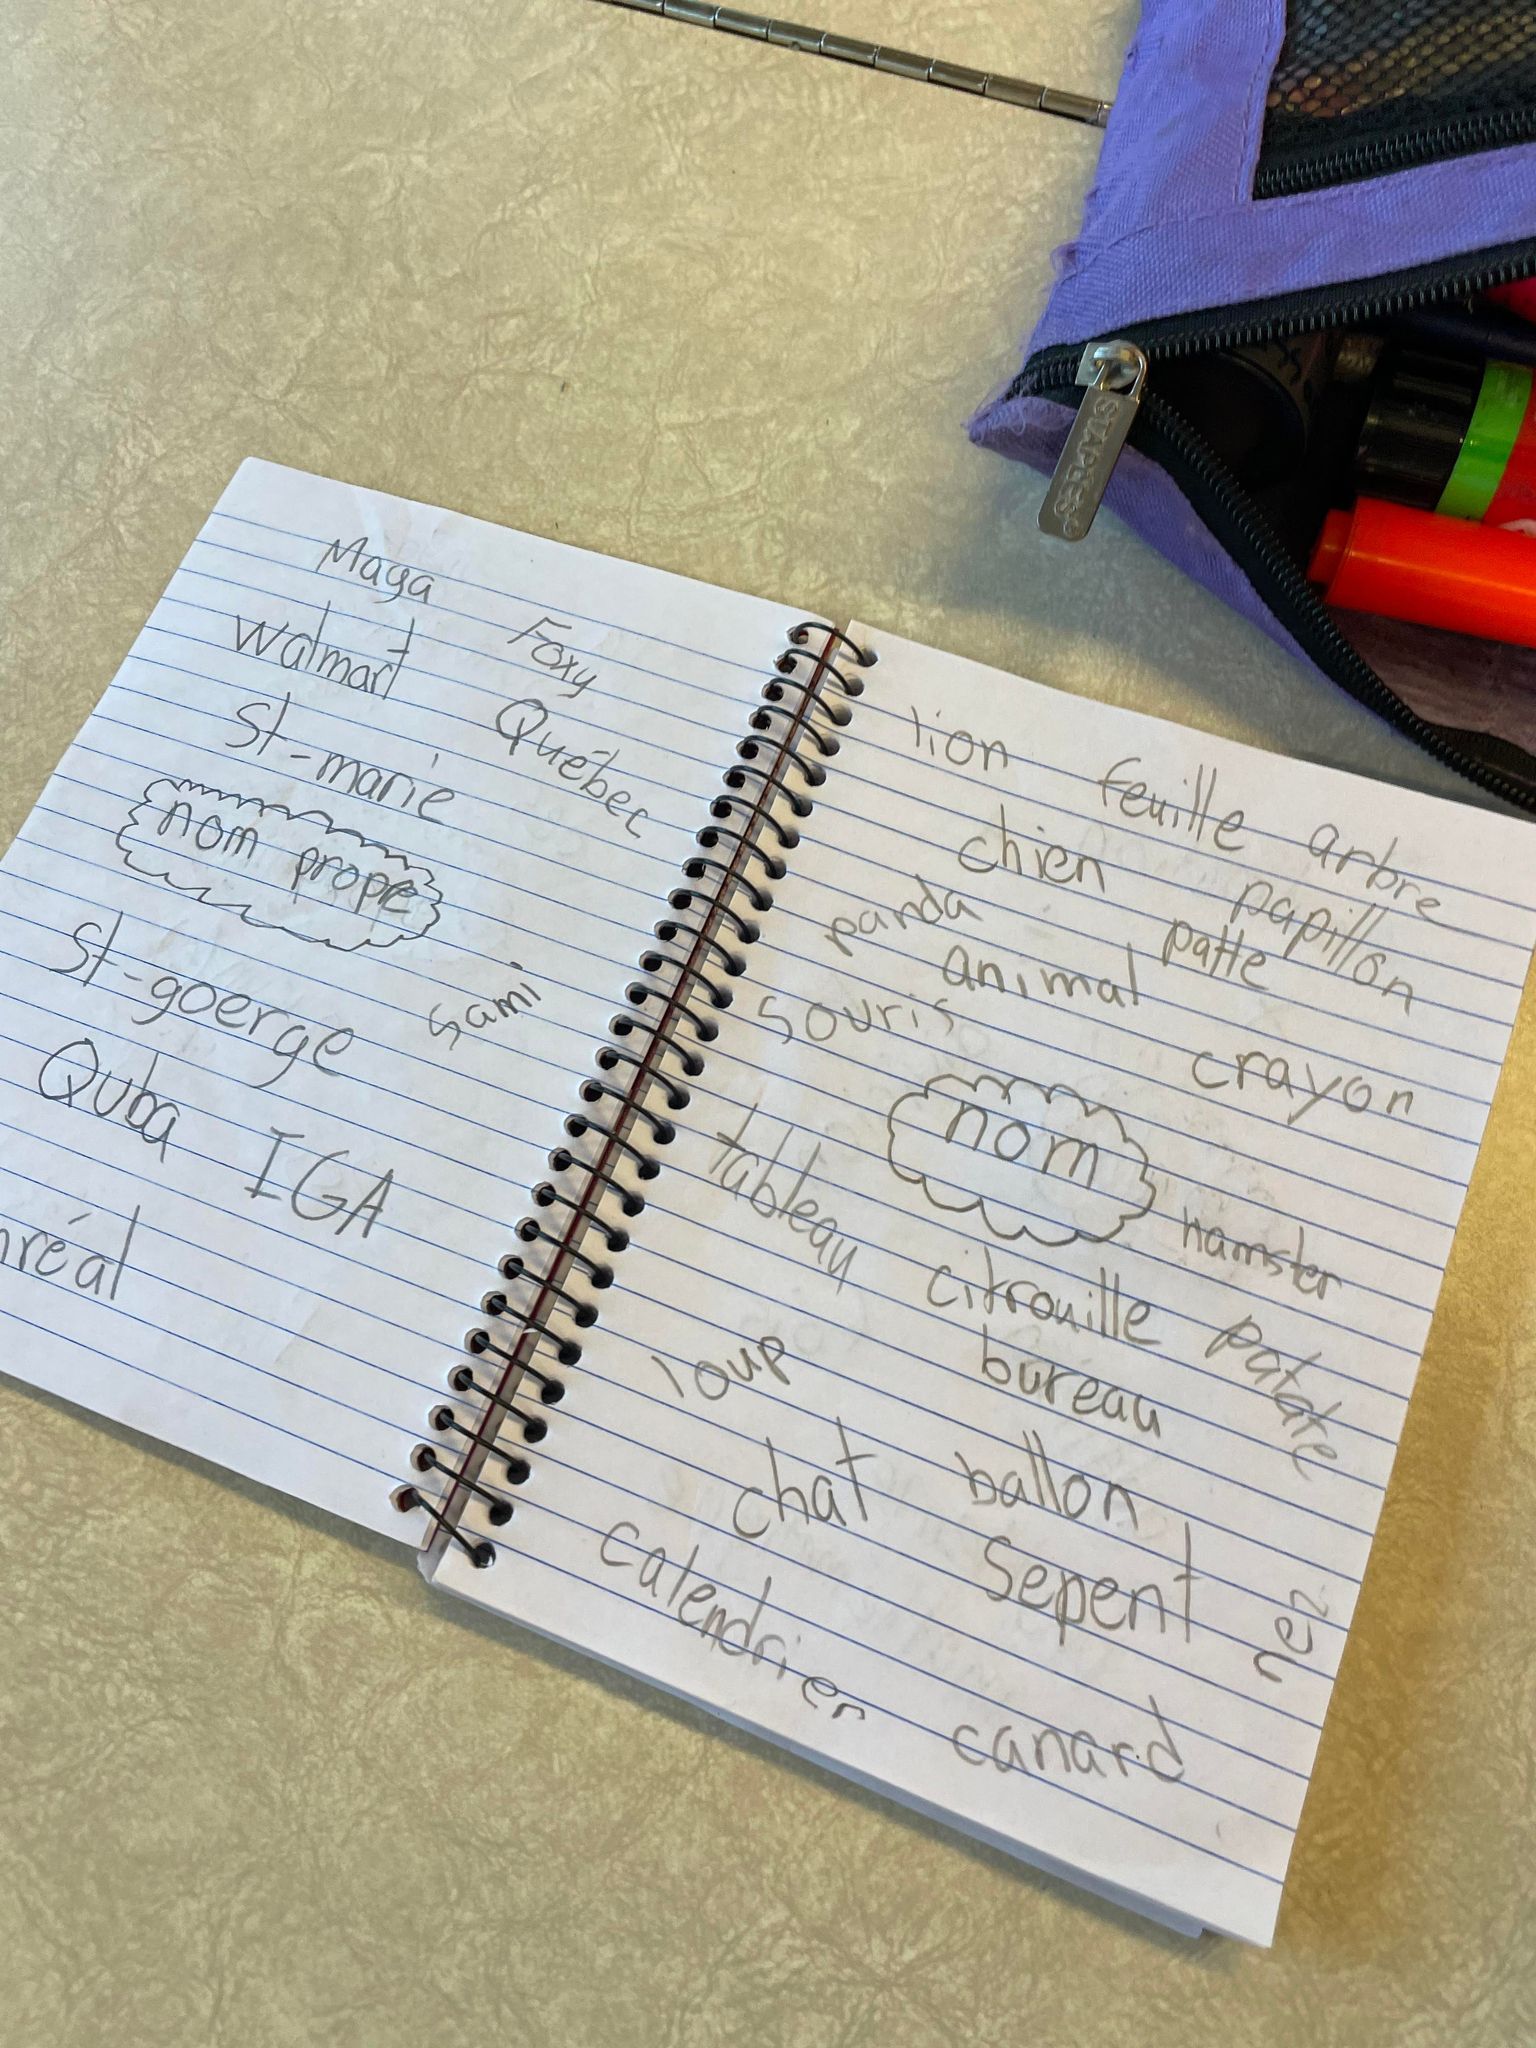 STAPLES
Maga
Foxy
Walmart
Québec
St-marie
nom prope
St-goerge
Sami
Quba
IGA
nréal
lion feuille arbre
chien papillon
panda patte
animal
souris
crayon
nom
tableau
hamster
citrouille patate
loup
bureau
chat ballon
Sepent
nez
calendrier
canard